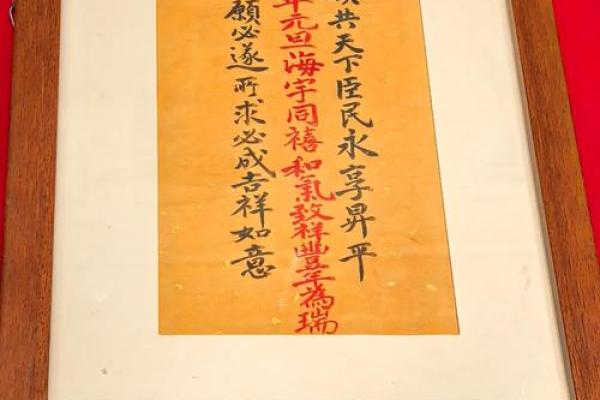 共天下臣民永享昇平
年元旦海宇同禧和氣致祥豐年為瑞
願必遂所求必成吉祥如意